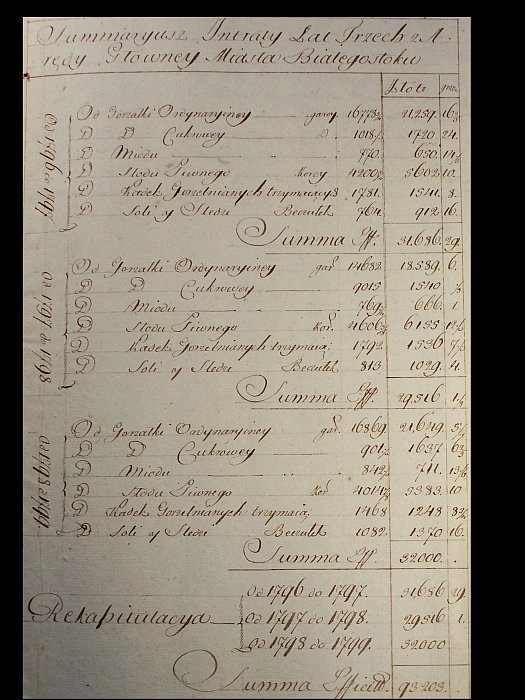 Summaryusz Intraty Lat Trzech z A-
rędy Głowney Miasta Białegostoku
złote
od 1796 do 1797
Od Gorzałki Ordynaryiney garcy 16778½ 21.259. 16
D D Cukrowey D 1018 1720. 24.
D Miodu 770. 650. 14
D Słodu Piwnego Korcy 4200 5602. 10.
D Kadek Gorzelnianych trzymaiących 1781. 1541. 8.
D Soli y Sledzi Beczułek 764. 912. 16.
Summa Eff. 31.686. 29.
od 1797 do 1798
Od Gorzałki Ordynaryiney gar. 14682. 18.589. 6.
D D Cukrowey 901 1540
D Miodu 769 666. 1.
D Słodu Piwnego Kor. 4606 6155. 12
D Kadek Gorzelnianych trzymaią. 1792. 1536. 7
D Soli y Sledzi Beczułek 813 1029. 4.
Summa Eff. 29.516. 1
od 1798 do 1799
Od Gorzałki Ordynaryiney gar. 16869. 21.629. 5
D D Cukrowey 901 1637. 6
D Miodu 842 711. 13
D Słodu Piwnego Kor. 4014 5383. 10
D Kadek Gorzelnianych trzymaią. 1468 1248. 8
D Soli y Sledzi Beczułek 1082. 1370. 16.
Summa Eff. 32000.
od 1796 do 1797. 31686 29
Rekapitulacya od 1797 do 1798. 29516 1.
od 1798 do 1799. 32000
Summa Efficit. 93203.